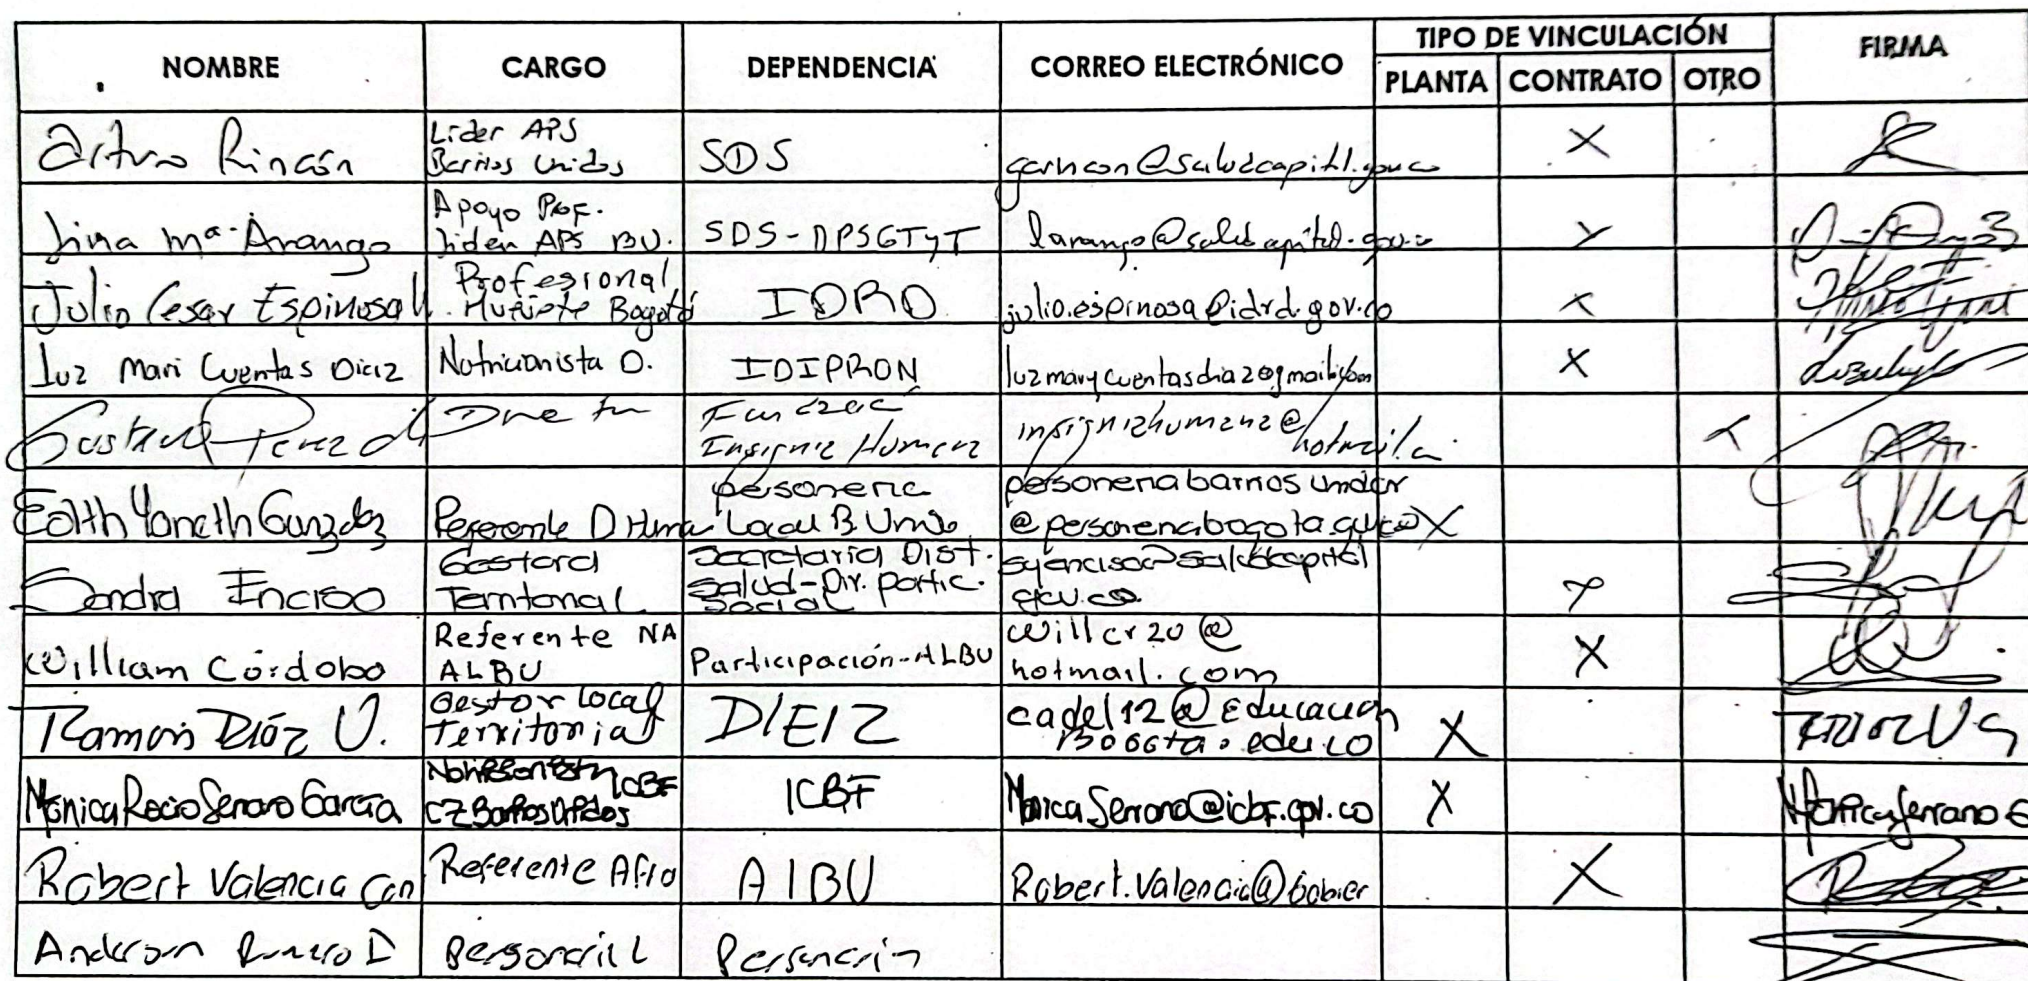 NOMBRE CARGO DEPENDENCIA CORREO ELECTRÓNICO TIPO DE VINCULACIÓN FIRMA
PLANTA CONTRATO OTRO
Arturo Rincón Lider APS Barrios Unidos SDS X
Lina Mª Arango Apoyo Prof. lider APS BU. SDS-DPSGTyT larango@saludcapital.gov.co X
Julio Cesar Espinosa Profesional Muévete Bogotá IDRD julio.espinosa@idrd.gov.co X
Luz Mari Cuentas Diaz Nutricionista D. IDIPRON luzmarycuentasdiaz@gmail.com X
Gustavo Perez Insignia Humana insigniahumana@hotmail. X
Edith Yaneth Referente Personeria Local B Unid @personeriabogota.gov.co X
Sandra Enciso Gestora Territorial Secretaria Dist. Salud-Dir. partic. Social syenciso@saludcapital gov.co X
William Córdoba Referente NA ALBU Participación-ALBU willcr20@hotmail.com X
Ramón Díaz U. Gestor local territorial cadel12@Educacion Bogota.edu.co X
Monica Rocio Serrano Garcia ICBF CZ Barrios Unidos ICBF MonicaSerrano@icbf.gov.co X Monica Serrano G
Robert Valencia Can Referente Afro AlBU Robert.Valencia@gobier X
Anderson Romero D Personeria